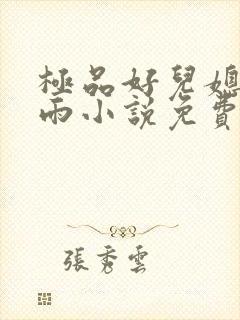 極品好兒媳
雨小說免費
張秀雲